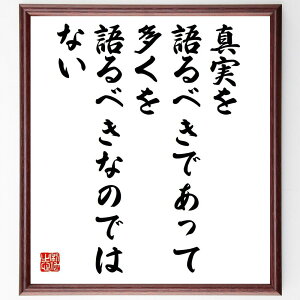 真実を
語るべきであって
多くを
語るべきなのでは
ない